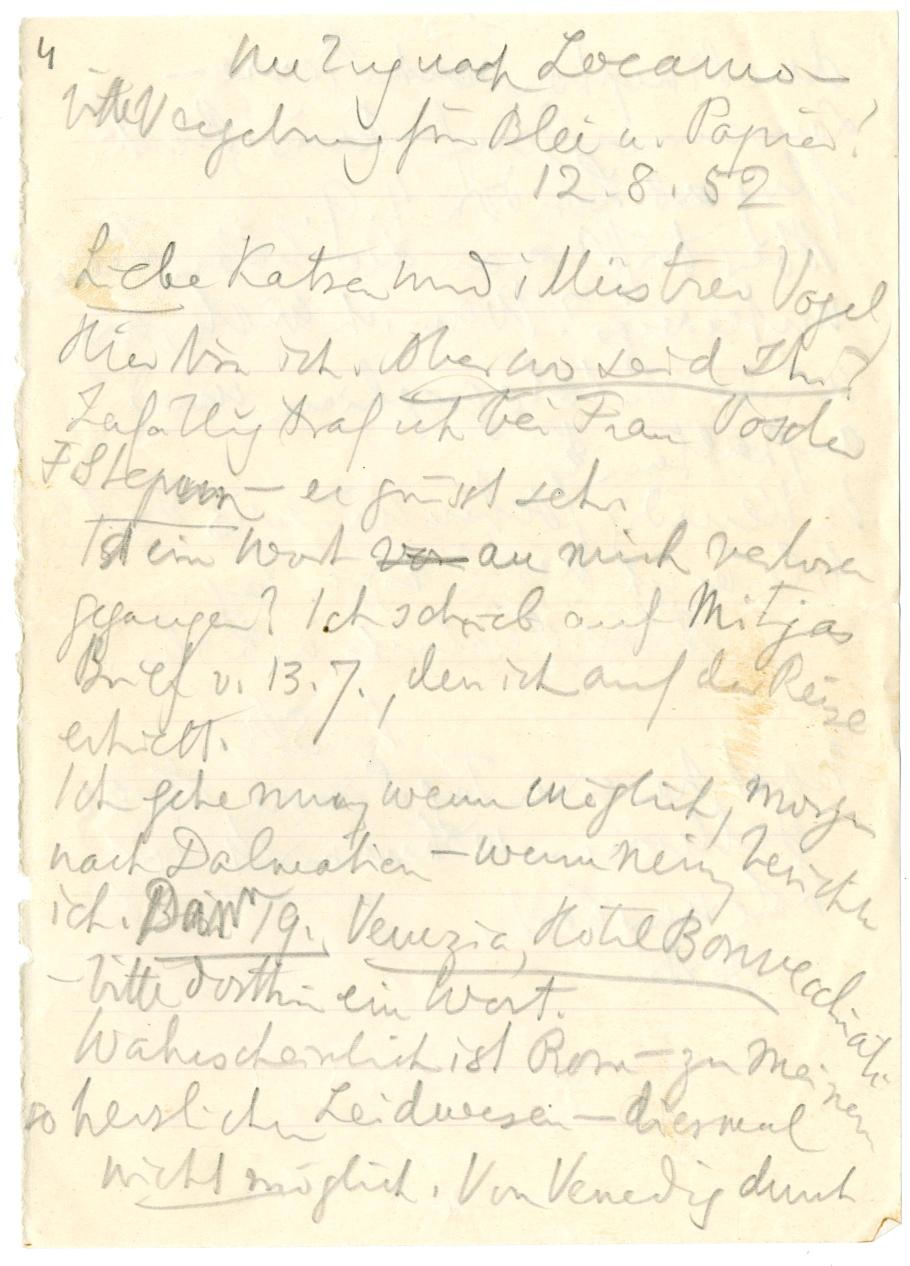 4
Zug nach Locarno —
bitte Vergebung für Blei u. Papier!
12.8.52
Liebe Katza und illustrer Vogel
Hier bin ich. Aber wo seid Ihr?
Zufällig traf ich bei Frau
F Stepun — er grüsst sehr.
Ist ein Wort von an mich verloren
gegangen? Ich schrieb auf Mitjas
Brief v. 13.7., den ich auf der Reise
erhielt.
Ich gehe nun, wenn möglich, morgen
nach Dalmatien — wenn nein,
ich. 19. Venezia, Hotel Bonvecchiati
— bitte dorthin ein Wort.
Wahrscheinlich ist Rom — zu meinem
so herzlichen Leidwesen — diesmal
nicht möglich. Von Venedig